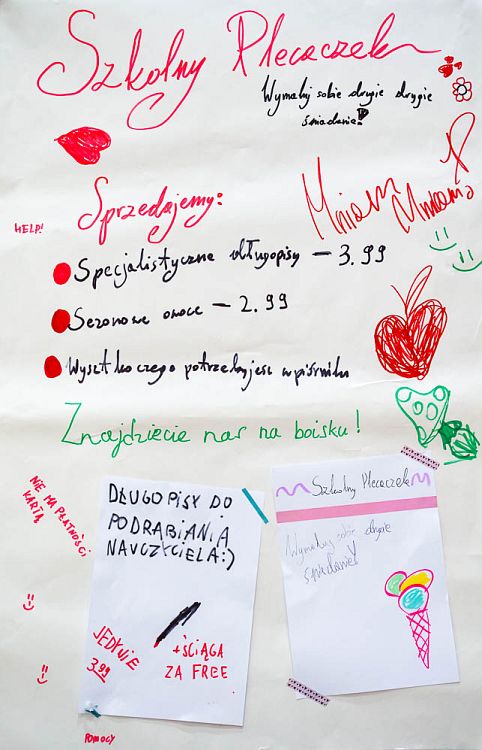 Szkolny Plecaczek
Wymaluj sobie drugie drugie
śniadanie!
Sprzedajemy:
Mniam
Mniamia
HELP!
Specjalistyczne długopisy – 3.99
Sezonowe owoce – 2.99
Wyszt ko czego potrzebujesz w piórniku
Znajdziecie nas na boisku!
NIE MA PŁATNOŚCI
KARTĄ
:)
:)
DŁUGOPISY DO
PODRABIANIA
NAUCZYCIELA:)
JEDYNIE
3.99
+ŚCIĄGA
ZA FREE
Szkolny Plecaczek
Wymaluj sobie drugie
śniadanie!
POMOCY